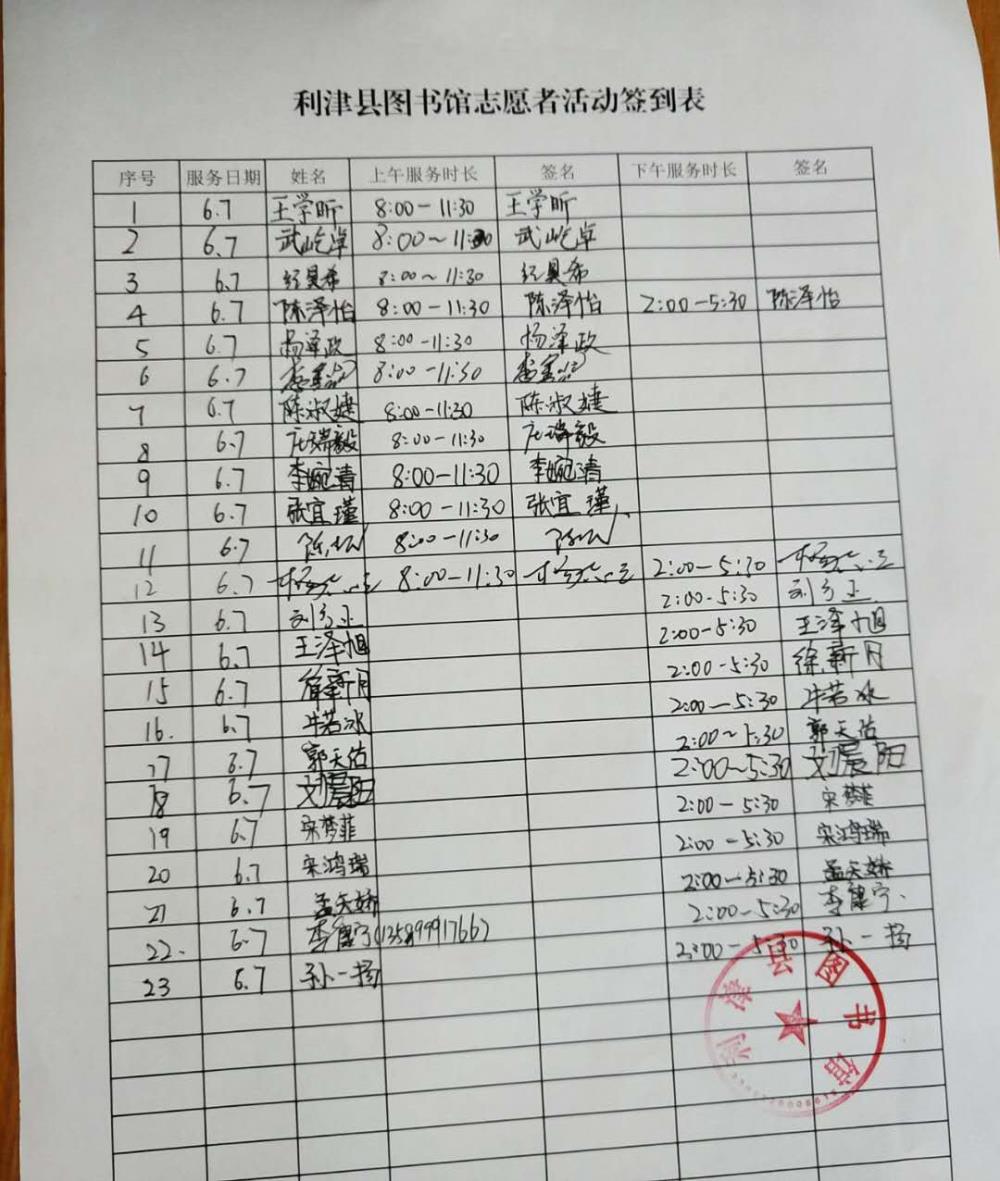 利津县图书馆志愿者活动签到表
序号 服务日期 姓名 上午服务时长 签名 下午服务时长 签名
1 6.7 王学昕 8:00-11:30 王学昕
2 6.7 武屹卓 8:00~11:30 武屹卓
3 6.7 8:00~11:30
4 6.7 陈泽怡 8:00-11:30 陈泽怡 2:00-5:30 陈泽怡
5 6.7 杨泽政 8:00-11:30 杨泽政
6 6.7 8:00-11:30
7 6.7 陈淑婕 8:00-11:30 陈淑婕
8 6.7 庄瑞毅 8:00-11:30 庄瑞毅
9 6.7 李婉清 8:00-11:30 李婉清
10 6.7 张宜瑾 8:00-11:30 张宜瑾
11 6.7 8:00-11:30
12 6.7 8:00-11:30 2:00-5:30
13 6.7 2:00-5:30
14 6.7 王泽旭 2:00-5:30 王泽旭
15 6.7 徐新月 2:00-5:30 徐新月
16. 6.7 牛若冰 2:00-5:30 牛若冰
17 6.7 郭天佑 2:00~5:30 郭天佑
18 6.7 刘晨阳 2:00~5:30 刘晨阳
19 6.7 宋梦菲 2:00-5:30 宋梦菲
20 6.7 宋鸿瑞 2:00-5:30 宋鸿瑞
21 6.7 孟天娇 2:00-5:30 孟天娇
22. 6.7 李健宁(13589991766) 2:00-5:30 李健宁.
23 6.7 孙一扬 2:00-5:30 孙一扬
利津县图书馆